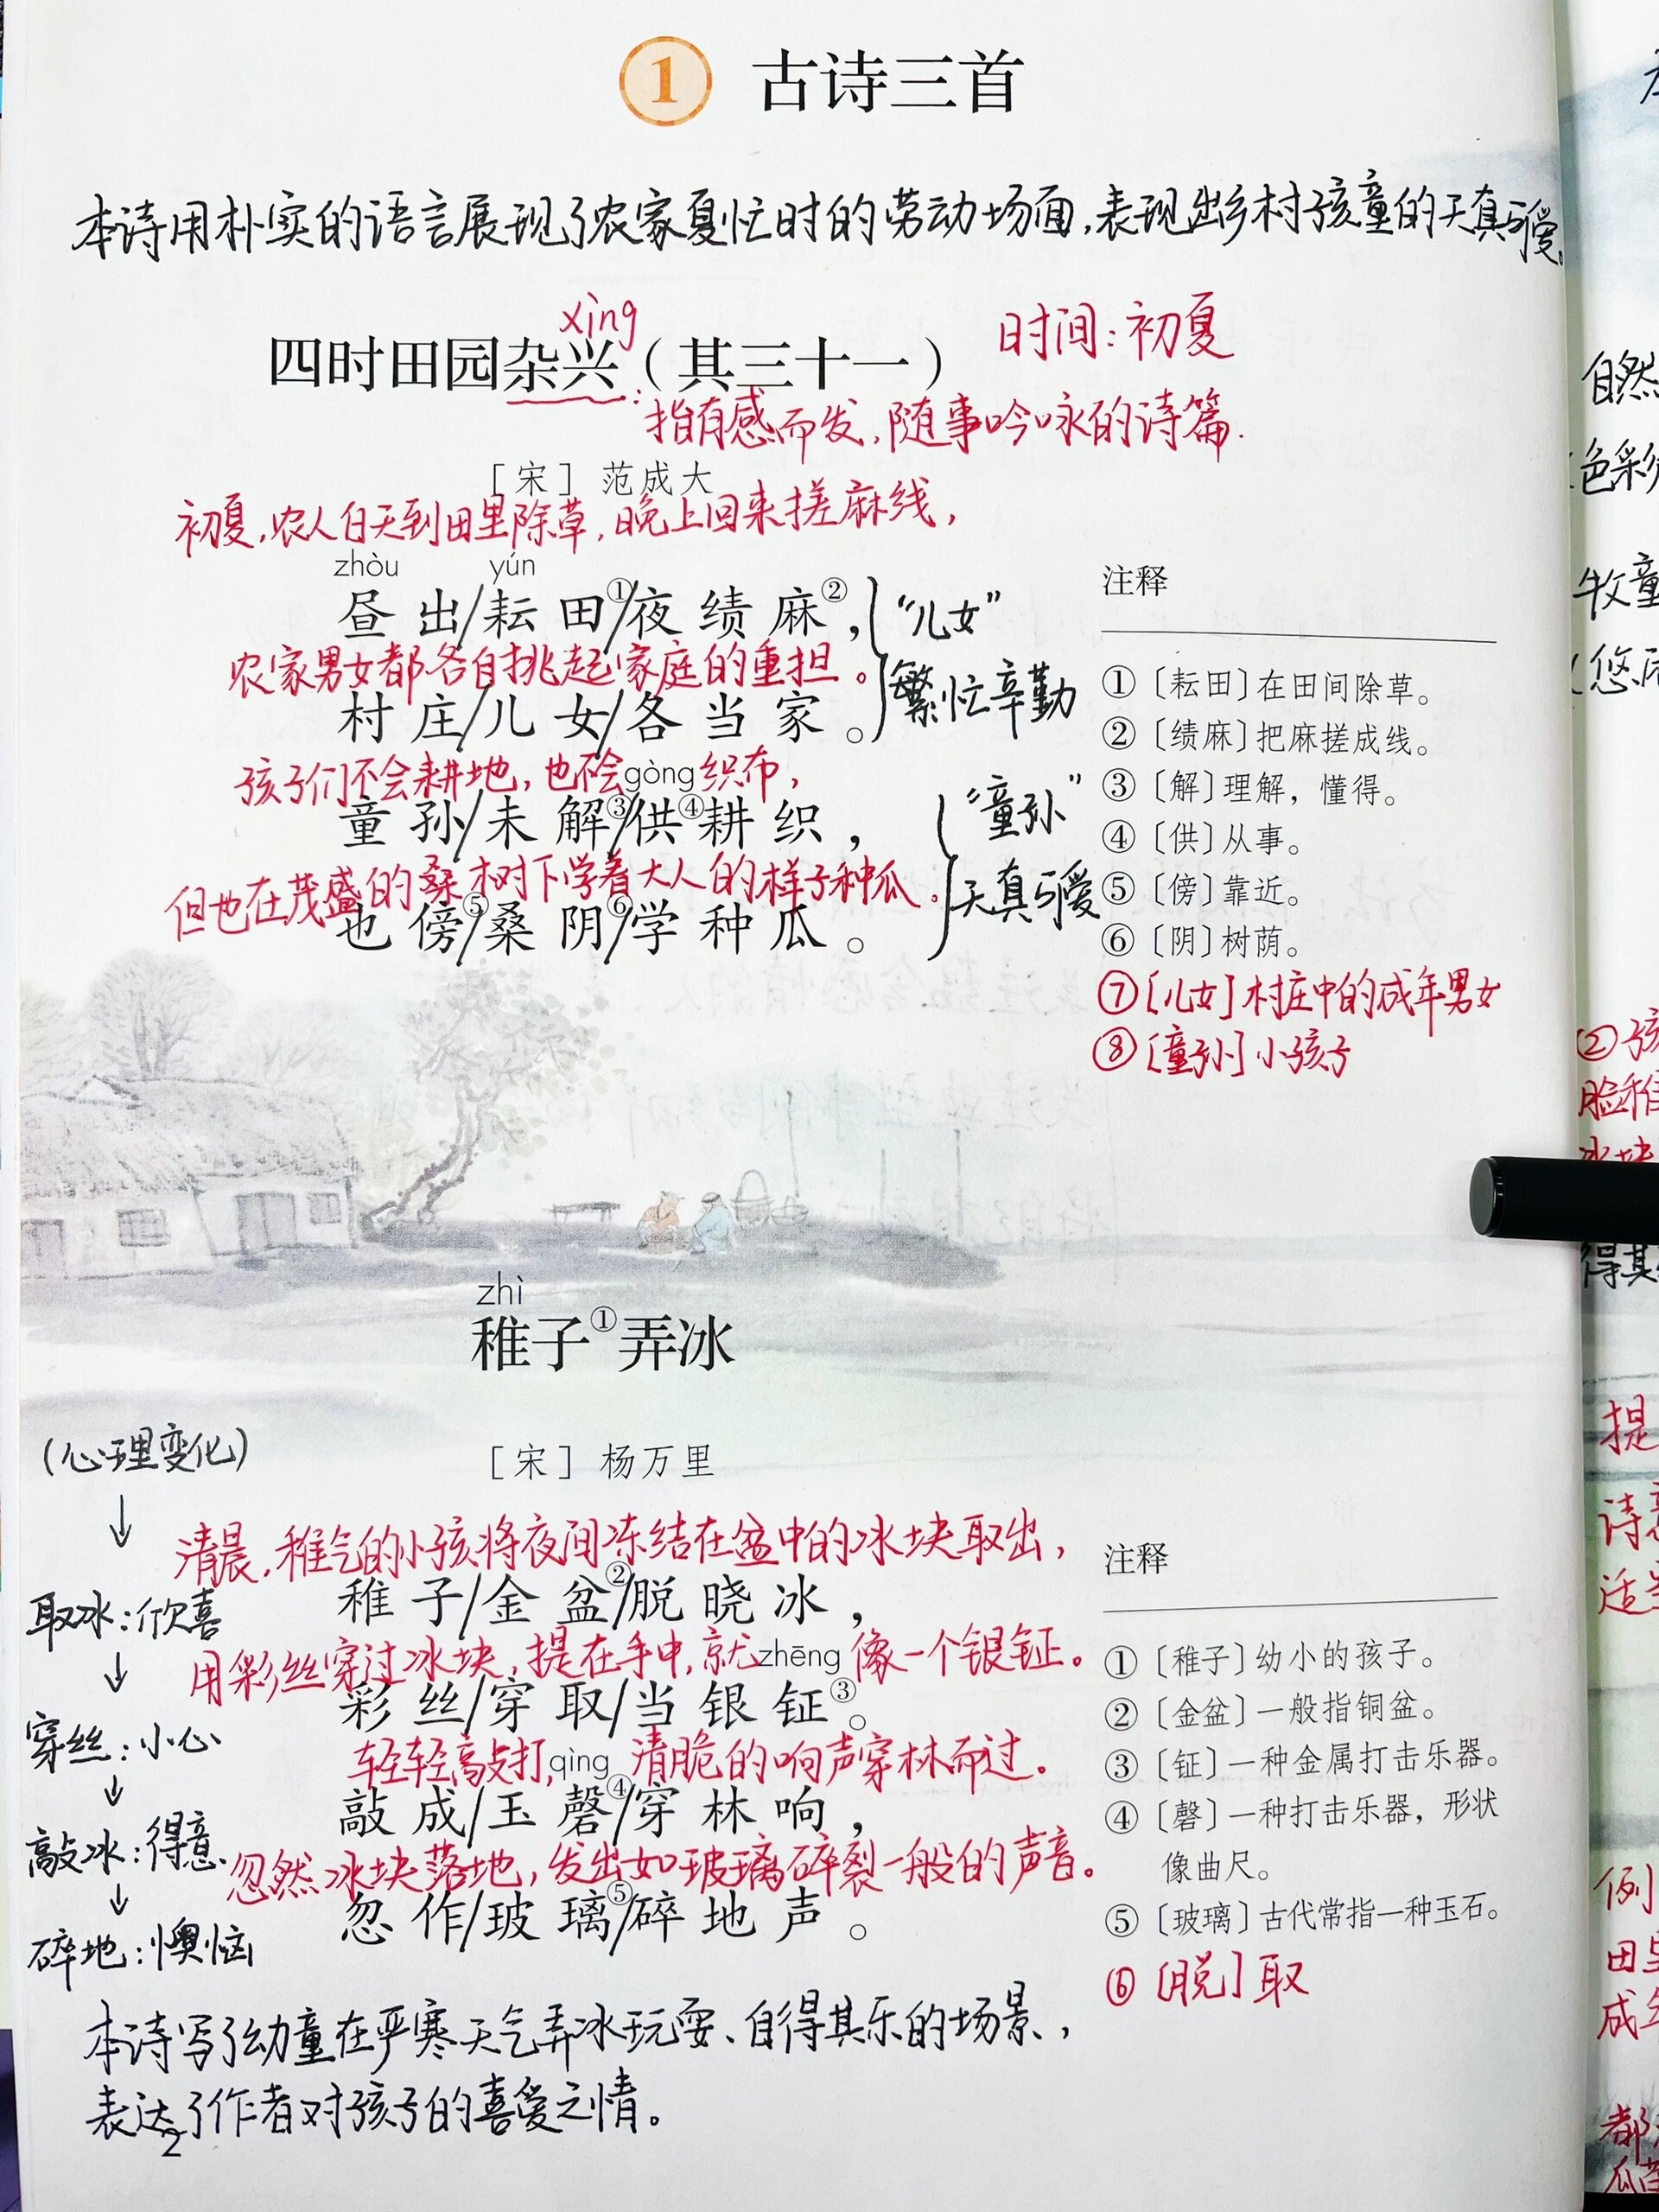 1 古诗三首
本诗用朴实的语言展现了农家夏忙时的劳动场面,表现出乡村孩童的天真可爱。
xìng
四时田园杂兴（其三十一） 时间:初夏
:指有感而发,随事吟咏的诗篇.
［宋］ 范成大
初夏,农人白天到田里除草,晚上回来搓麻线,
zhòu yún
昼出/耘田①/夜绩麻②,
农家男女都各自挑起家庭的重担。
村庄/儿女/各当家。
“儿女”
繁忙辛勤
孩子们不会耕地,也不会织布,
gòng
童孙/未解③/供④耕织，
但也在茂盛的桑树下学着大人的样子种瓜。
也傍⑤/桑阴⑥/学种瓜。
“童孙”
天真可爱
注释
①〔耘田〕在田间除草。
②〔绩麻〕把麻搓成线。
③〔解〕理解，懂得。
④〔供〕从事。
⑤〔傍〕靠近。
⑥〔阴〕树荫。
⑦[儿女]村庄中的成年男女
⑧[童孙]小孩子
zhì
稚子①弄冰
［宋］ 杨万里
(心理变化)
↓
取冰:欣喜
↓
穿丝:小心
↓
敲冰:得意
↓
碎地:懊恼
清晨,稚气的小孩将夜间冻结在盆中的冰块取出,
稚子/金盆②/脱晓冰，
用彩丝穿过冰块,提在手中,就像一个银钲。
zhēng
彩丝/穿取/当银钲③。
轻轻敲打,清脆的响声穿林而过。
qìng
敲成/玉磬④/穿林响，
忽然冰块落地,发出如玻璃碎裂一般的声音。
忽作/玻璃⑤/碎地声。
注释
①〔稚子〕幼小的孩子。
②〔金盆〕一般指铜盆。
③〔钲〕一种金属打击乐器。
④〔磬〕一种打击乐器，形状
像曲尺。
⑤〔玻璃〕古代常指一种玉石。
⑥[脱]取
本诗写了幼童在严寒天气弄冰玩耍、自得其乐的场景,
表达了作者对孩子的喜爱之情。
2
自然
色彩
牧童
悠
②孩
脸稚
冰块
得其
提
诗
适
例
田里
成年
都
瓜